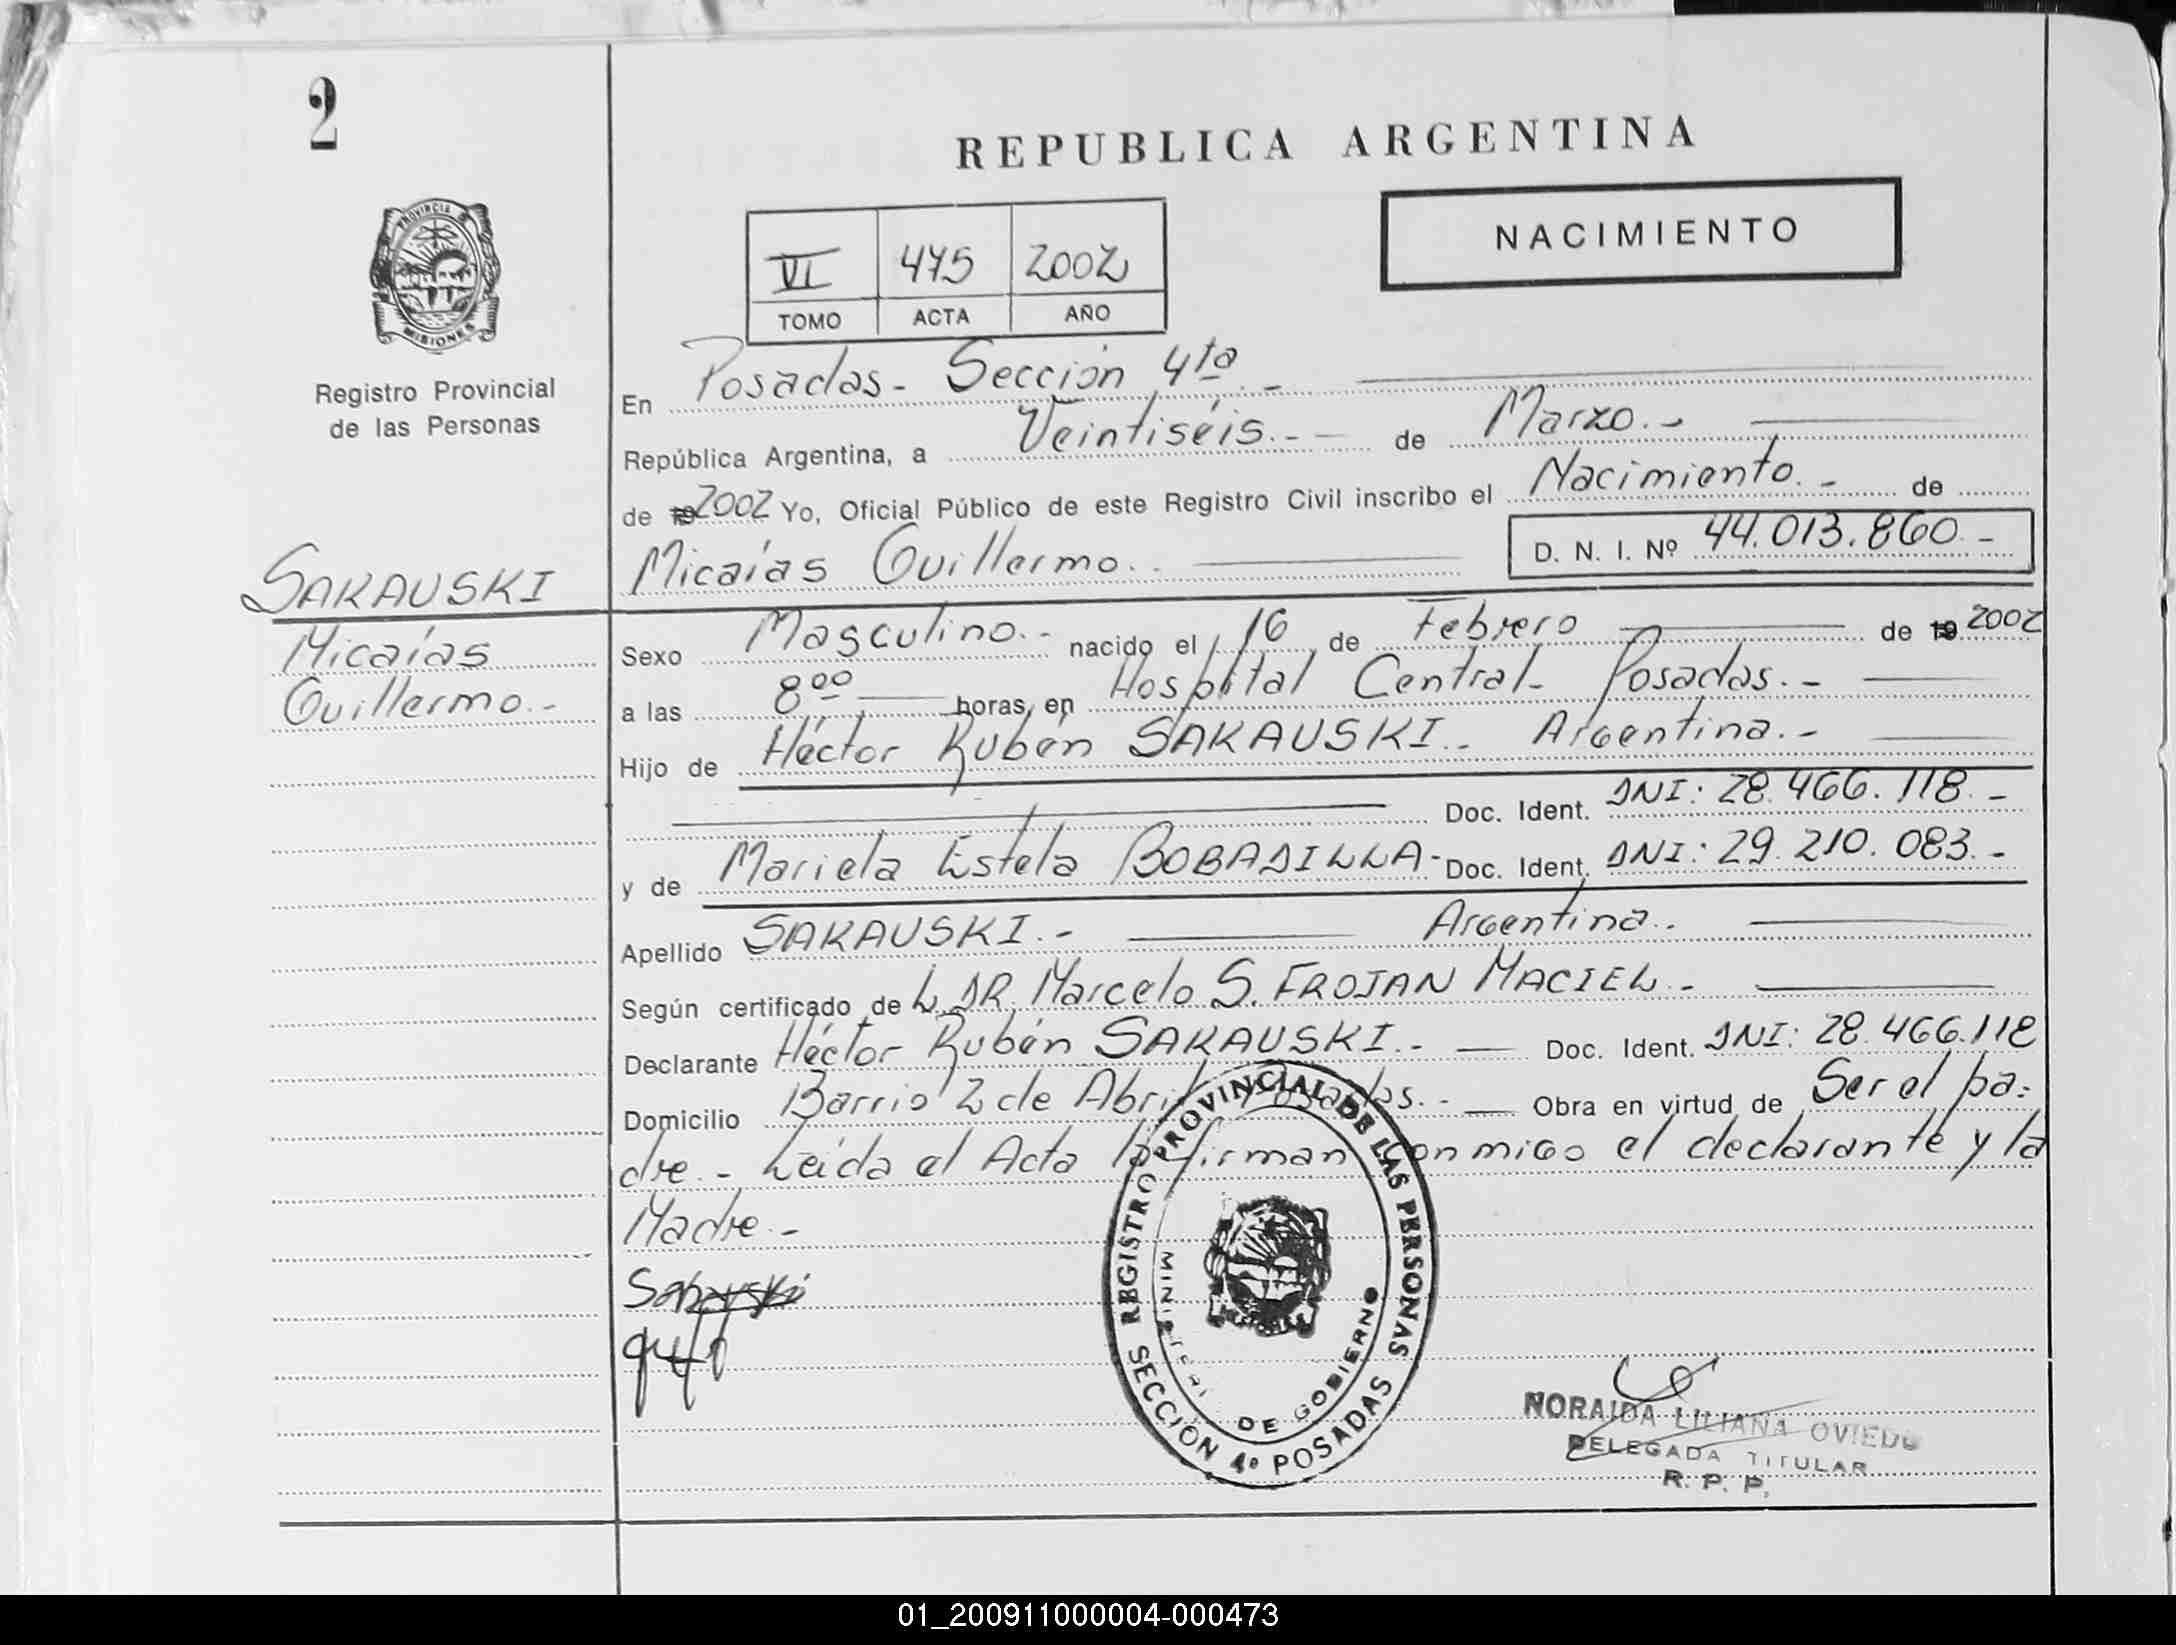 2
REPUBLICA ARGENTINA
NACIMIENTO
VI 475 2002
TOMO ACTA AÑO
PROVINCIA DE
MISIONES
Registro Provincial
de las Personas
En Posadas - Sección 4ta -
República Argentina, a Veintiséis.- de Marzo.-
de 19 2002 Yo, Oficial Público de este Registro Civil inscribo el Nacimiento.- de
Micaías Guillermo.- D. N. I. Nº 44.013.860.-
SAKAUSKI
Micaías
Guillermo.-
Sexo Masculino.- nacido el 16 de Febrero de 19 2002
a las 8 00 horas, en Hospital Central - Posadas.-
Hijo de Héctor Rubén SAKAUSKI.- Argentina.-
Doc. Ident. DNI: 28.466.118.-
y de Mariela Estela BOBADILLA.- Doc. Ident. DNI: 29.210.083.-
Apellido SAKAUSKI.- Argentina.-
Según certificado de L DR. Marcelo S. FROJAN MACIEL.-
Declarante Héctor Rubén SAKAUSKI.- Doc. Ident. DNI: 28.466.118
Domicilio Barrio 2 de Abril Posadas.- Obra en virtud de Ser el pa=
dre.- Leída el Acta la firman conmigo el declarante y la
Madre.-
REGISTRO PROVINCIAL DE LAS PERSONAS
MINISTERIO DE GOBIERNO
SECCIÓN 4º POSADAS
NORAIDA LILIANA OVIEDO
DELEGADA TITULAR
R. P. P.
01_200911000004-000473